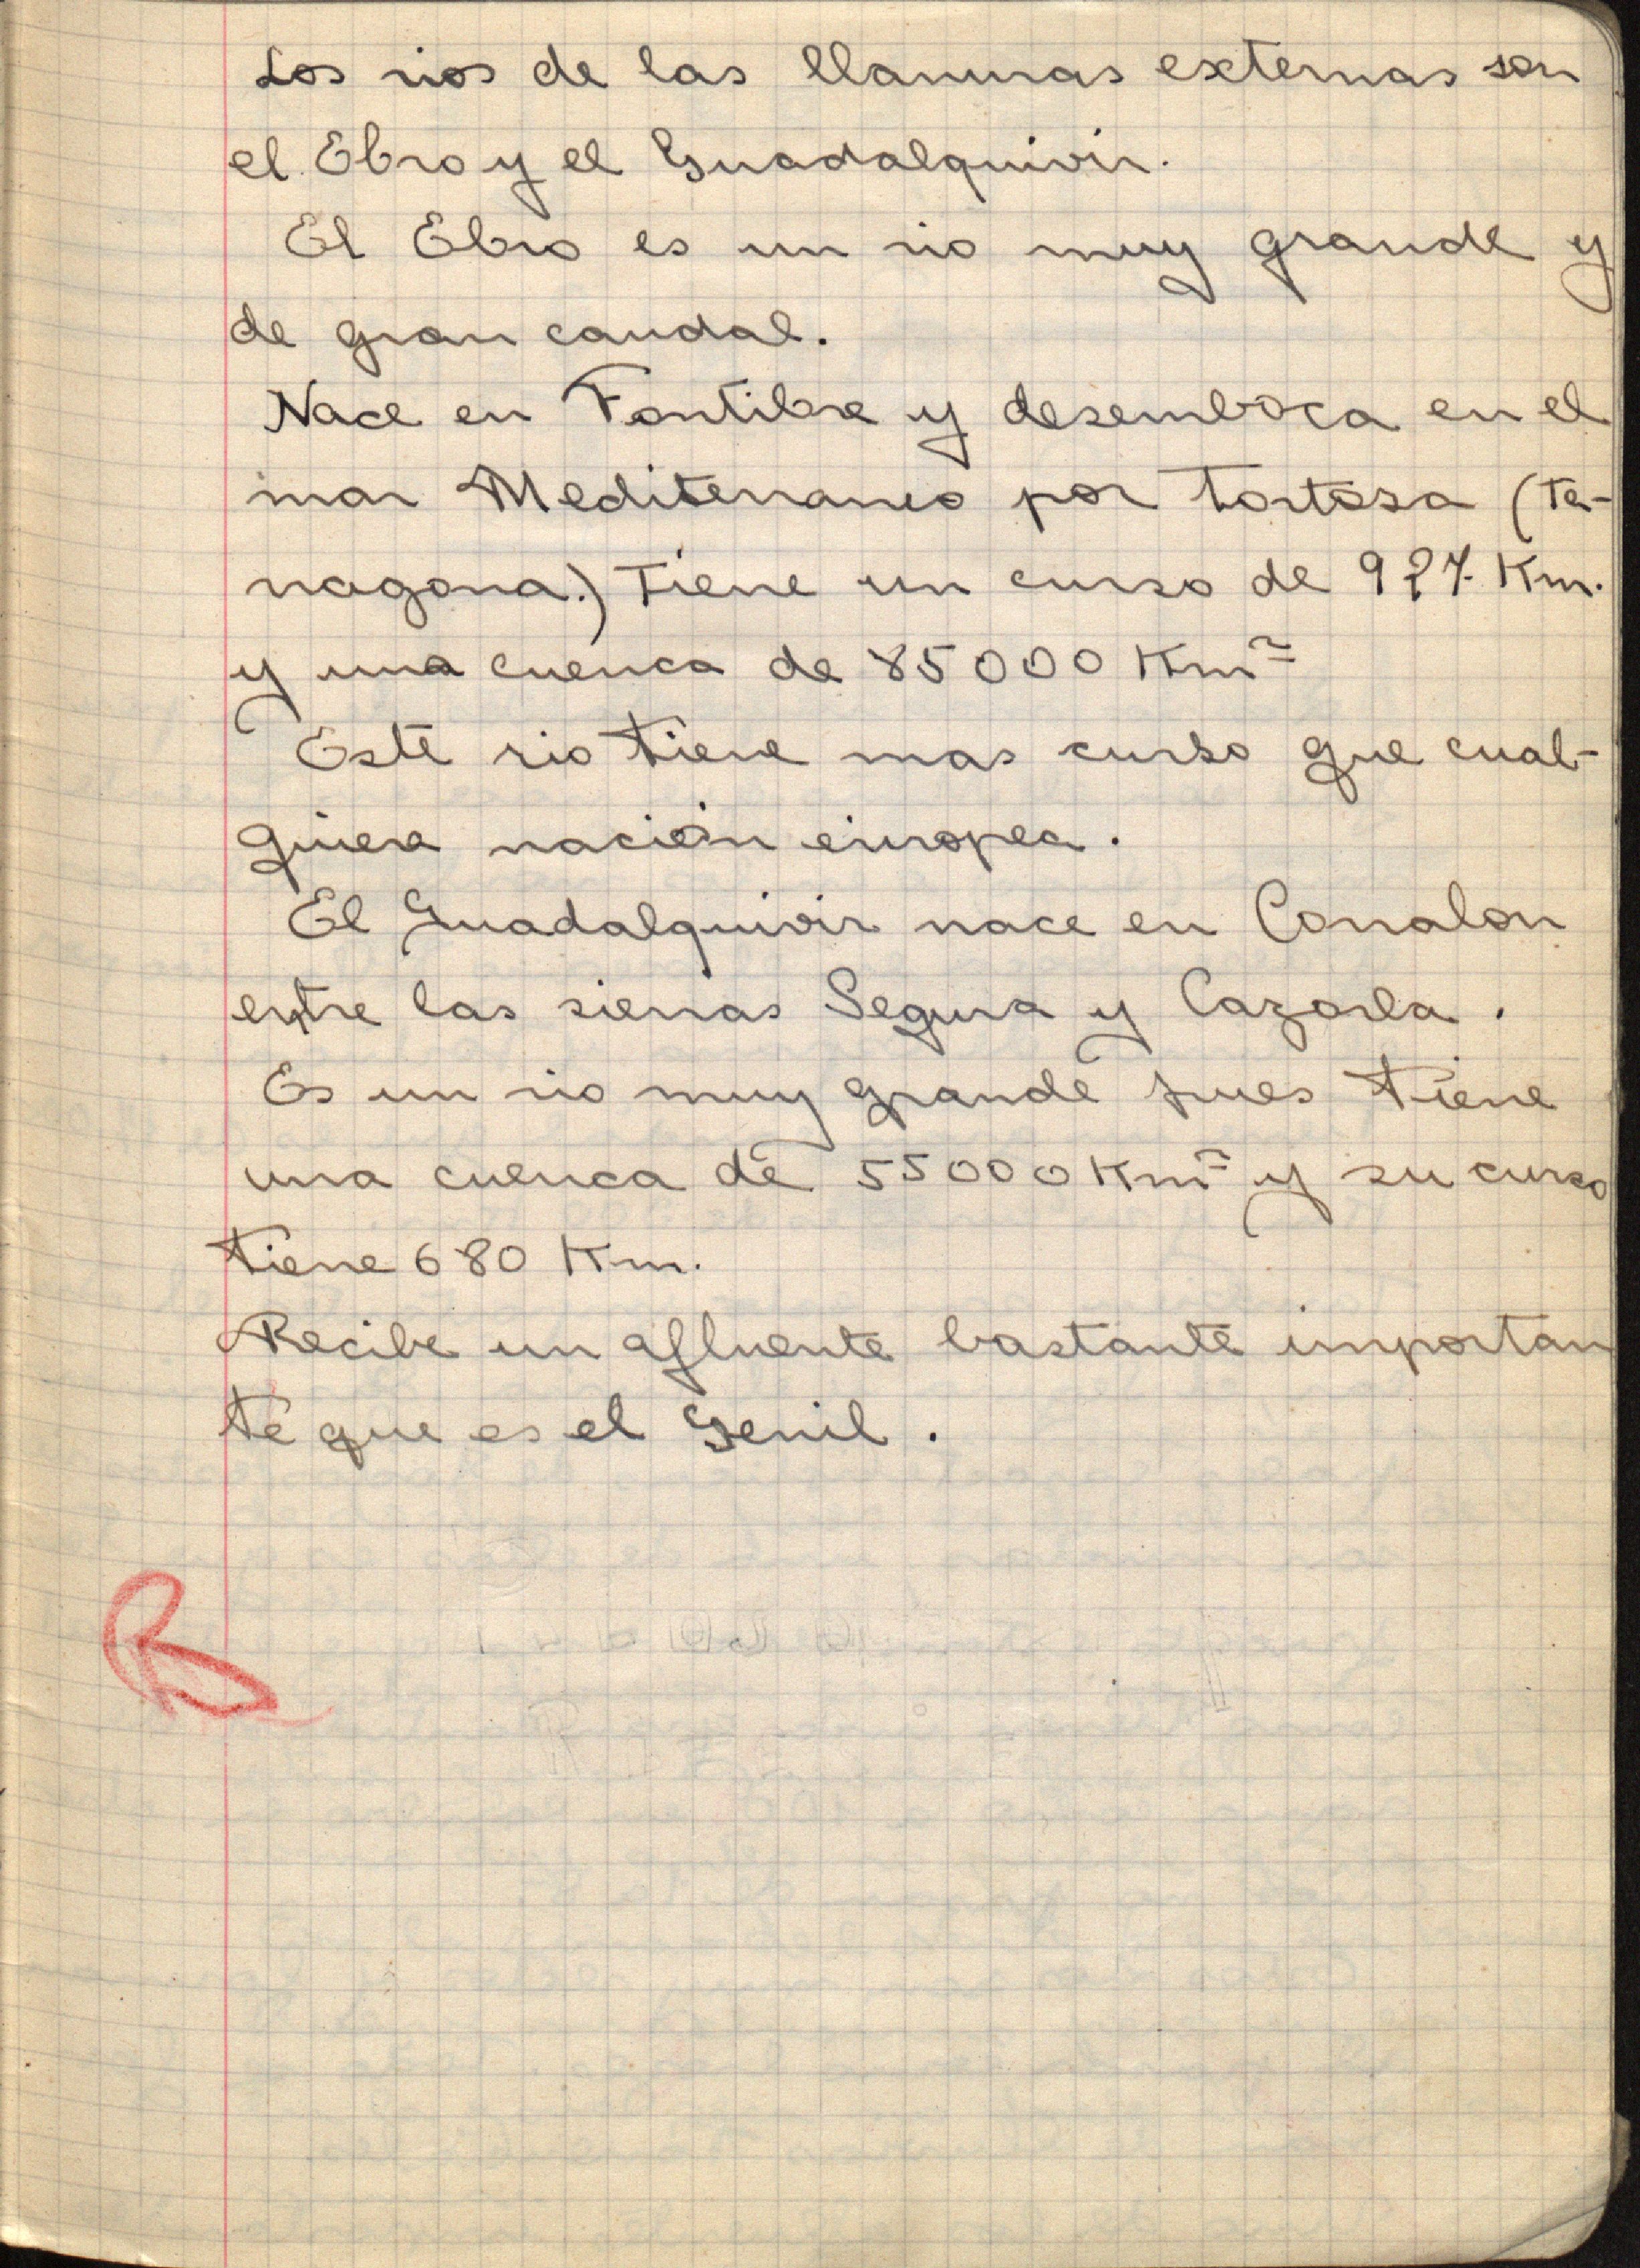 Los rios de las llanuras externas son
el Ebro y el Guadalquivir.
El Ebro es un rio muy grande y
de gran caudal.
Nace en Fontibre y desemboca en el
mar Mediterraneo por Tortosa (Ta-
rragona.) Tiene un curso de 927 Km.
y una cuenca de 85000 Km²
Este rio tiene mas curso que cual-
quiera nación europea.
El Guadalquivir nace en Corralon
entre las sierras Segura y Cazorla.
Es un rio muy grande pues tiene
una cuenca de 55000 Km² y su curso
tiene 680 Km.
Recibe un afluente bastante importan
te que es el Genil.